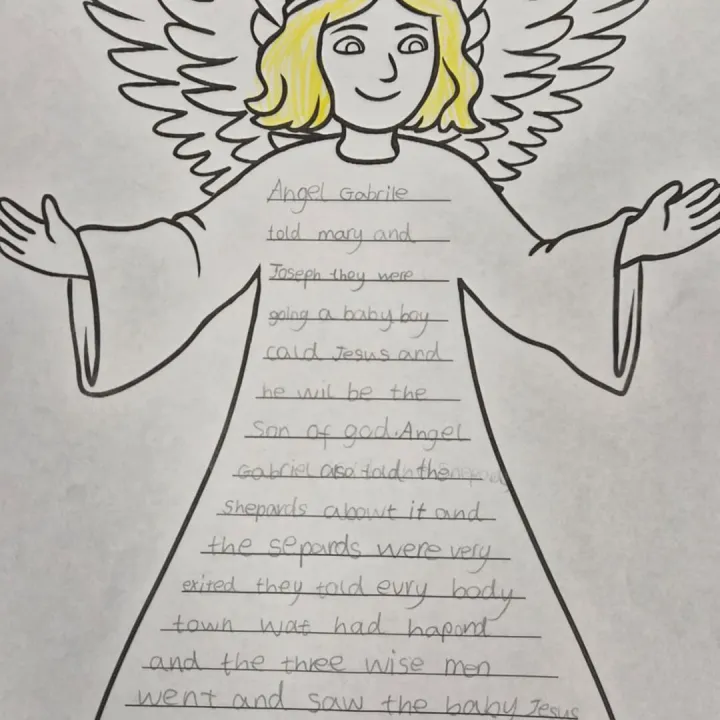 Angel Gabrile
told mary and
Joseph they were
going a baby boy
cald Jesus and
he wil be the
Son of god. Angel
Gabriel also told the
Shepards about it and
the separds were very
exited they told evry body
town wat had hapond
and the three wise men
went and saw the baby Jesus